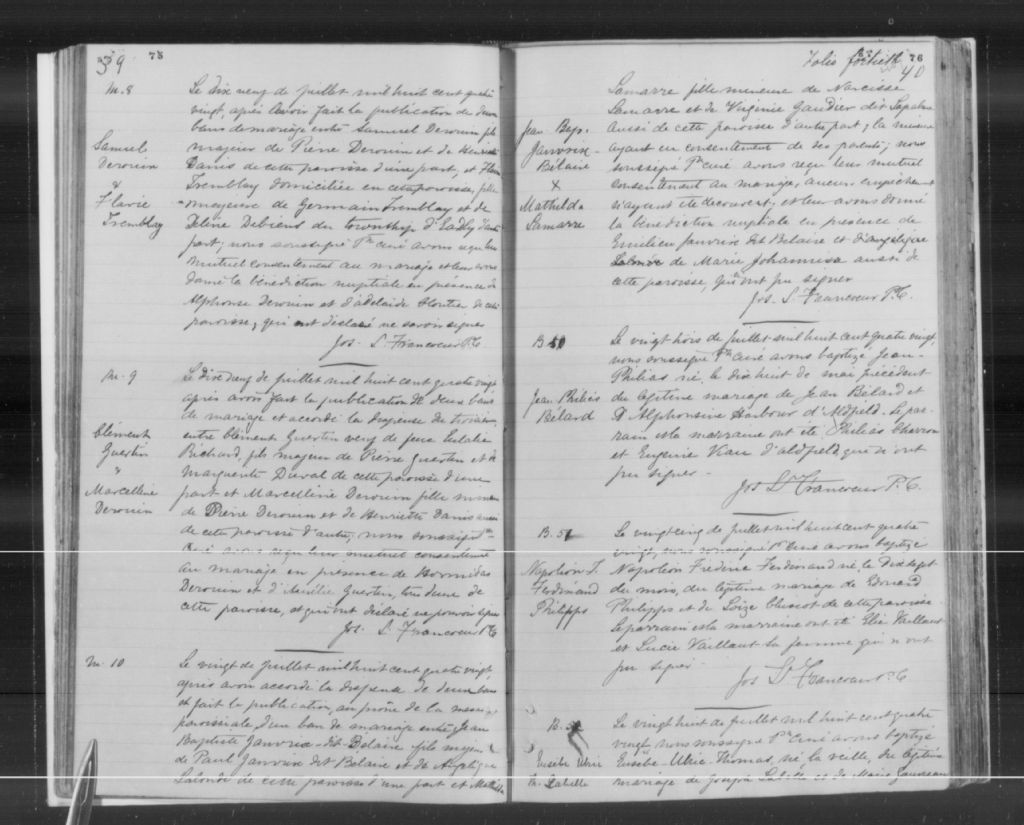 39 75
M. 8
Samuel
Derouin
&
Flavie
Tremblay
Le dix neuf de juillet mil huit cent quatre
vingt, après avoir fait la publication de deux
bans de mariage entre Samuel Derouin fils
majeur de Pierre Derouin et de Henriette
Danis de cette paroisse d'une part, et Flavie
Tremblay domiciliée en cette paroisse, fille
majeure de Germain Tremblay et de
Deline Debiens du township d'Eardly d'autre
part, nous soussigné Ptre curé avons reçu leur
mutuel consentement au mariage et leur avons
donné la bénédiction nuptiale en présence de
Alphonse Derouin et d'adelaide Cloutier de cette
paroisse, qui ont déclaré ne savoir signer
Jos. S. Francoeur P.C
M. 9
Clément
Guertin
"
Marcelline
Derouin
Le dix neuf de juillet mil huit cent quatre vingt
après avoir fait la publication de deux bans
de mariage et accordé la dispense du troisième,
entre Clément Guertin veuf de feue Eulalie
Richard, fils majeur de Pierre Guertin et de
Marguerite Dieval de cette paroisse d'une
part et Marcelline Derouin fille mineure
de Pierre Derouin et de Henriette Danis aussi
de cette paroisse d'autre, nous soussigné Ptre
Curé avons reçu leur mutuel consentement
au mariage en présence de Hormidas
Derouin et d'Aurélie Guertin, tous deux de
cette paroisse, et qui ont déclaré ne pouvoir signer
Jos. S. Francoeur P.C
M. 10
Le vingt de juillet mil huit cent quatre vingt,
après avoir accordé la dispense de deux bans
et fait la publication, au prône de la messe
paroissiale d'un ban de mariage entre Jean
Baptiste Janvrix dit Belaire fils majeur
de Paul Janvrix dit Belaire et de Angelique
Lalonde de cette paroisse d'une part et Mathilda
Folio fortieth 76
40
Jean Bap.
Janvrix
Bélaire
X
Mathilda
Lamarre
Lamarre fille mineure de Narcisse
Lamarre et de Virginie Gaudier dit
aussi de cette paroisse d'autre part; la mineure
ayant eu consentement de ses parents; nous
soussigné Ptre curé avons reçu leur mutuel
consentement au mariage, aucun empêchement
n'ayant été découvert; et leur avons donné
la bénédiction nuptiale en présence de
Emilien Janvrix dit Belaire et d'angelique
de Marie Johannisse aussi de
cette paroisse, qui n'ont pu signer
Jos. S. Francoeur P.C.
B 50
Jean Philias
Bélard
Le vingt trois de juillet mil huit cent quatre vingt,
nous soussigné Ptre curé avons baptizé Jean-
Philias né le dix huit de mai précédent
du légitime mariage de Jean Bélard et
D'Alphonsine Harbour d'Aldfield. Le par-
rain et la marraine ont été Philias Charron
et Eugenie Viau d'aldfield, qui n'ont
pu signer
Jos S. Francoeur P.C.
B. 51
Napoléon F.
Ferdinand
Philipps
Le vingt cinq de juillet mil huit cent quatre
vingt, nous soussigné Ptre Curé avons baptizé
Napoléon Frederic Ferdinand né le dix sept
du mois, du légitime mariage de Edouard
Philipps et de Loize de cette paroisse.
Le parrain et la marraine ont été Elie Vaillant
et Lucie Vaillant sa femme qui n'ont
pu signer
Jos S. Francoeur P.C
B.
Eusèbe Ulric
Th. Labelle
Le vingt huit de juillet mil huit cent quatre
vingt nous soussigné Ptre Curé avons baptizé
Eusèbe-Ulric-Thomas, né la veille, du légitime
mariage de Joseph Labelle et de Marie